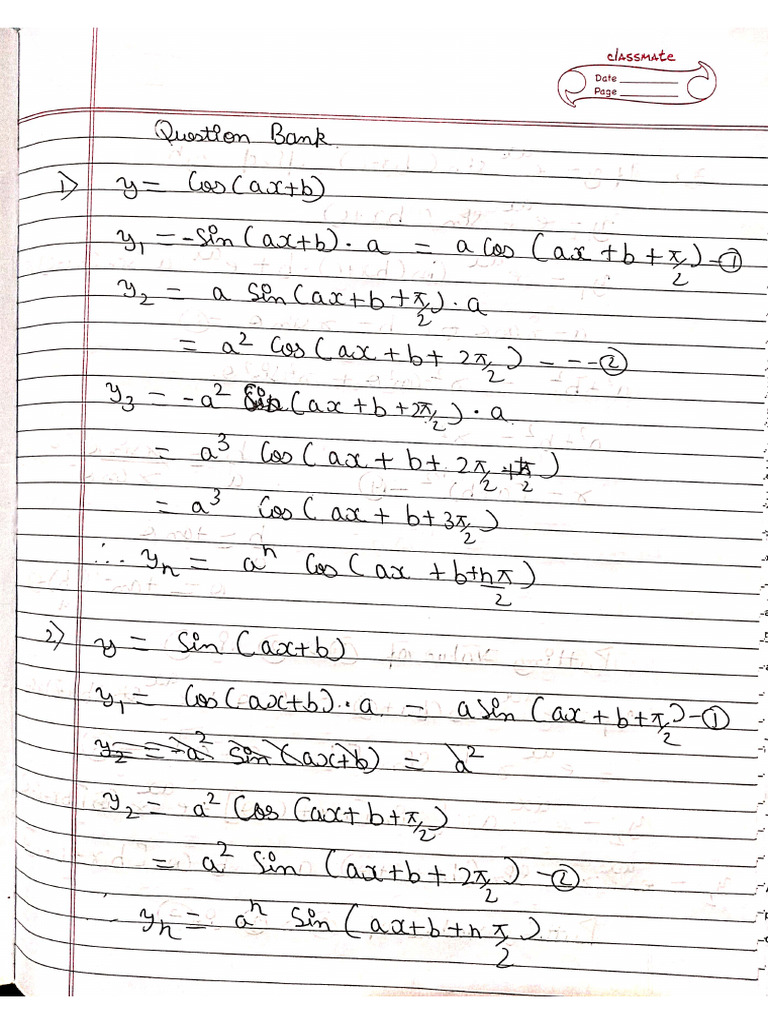 classmate
Date
Page
Question Bank
1) y = Cos(ax+b)
y₁ = -Sin(ax+b)·a = a Cos(ax+b+π/2) -①
y₂ = a Sin(ax+b+π/2)·a
= a² Cos(ax+b+2π/2) ----②
y₃ = -a² Sin(ax+b+2π/2)·a
= a³ Cos(ax+b+2π/2+π/2)
= a³ Cos(ax+b+3π/2)
∴ yₙ = aⁿ Cos(ax+b+nπ/2)
2) y = Sin(ax+b)
y₁ = Cos(ax+b)·a = a Sin(ax+b+π/2) -①
y₂ = -a² Sin(ax+b) = a²
y₂ = a² Cos(ax+b+π/2)
= a² Sin(ax+b+2π/2) -②
∴ yₙ = aⁿ Sin(ax+b+nπ/2)